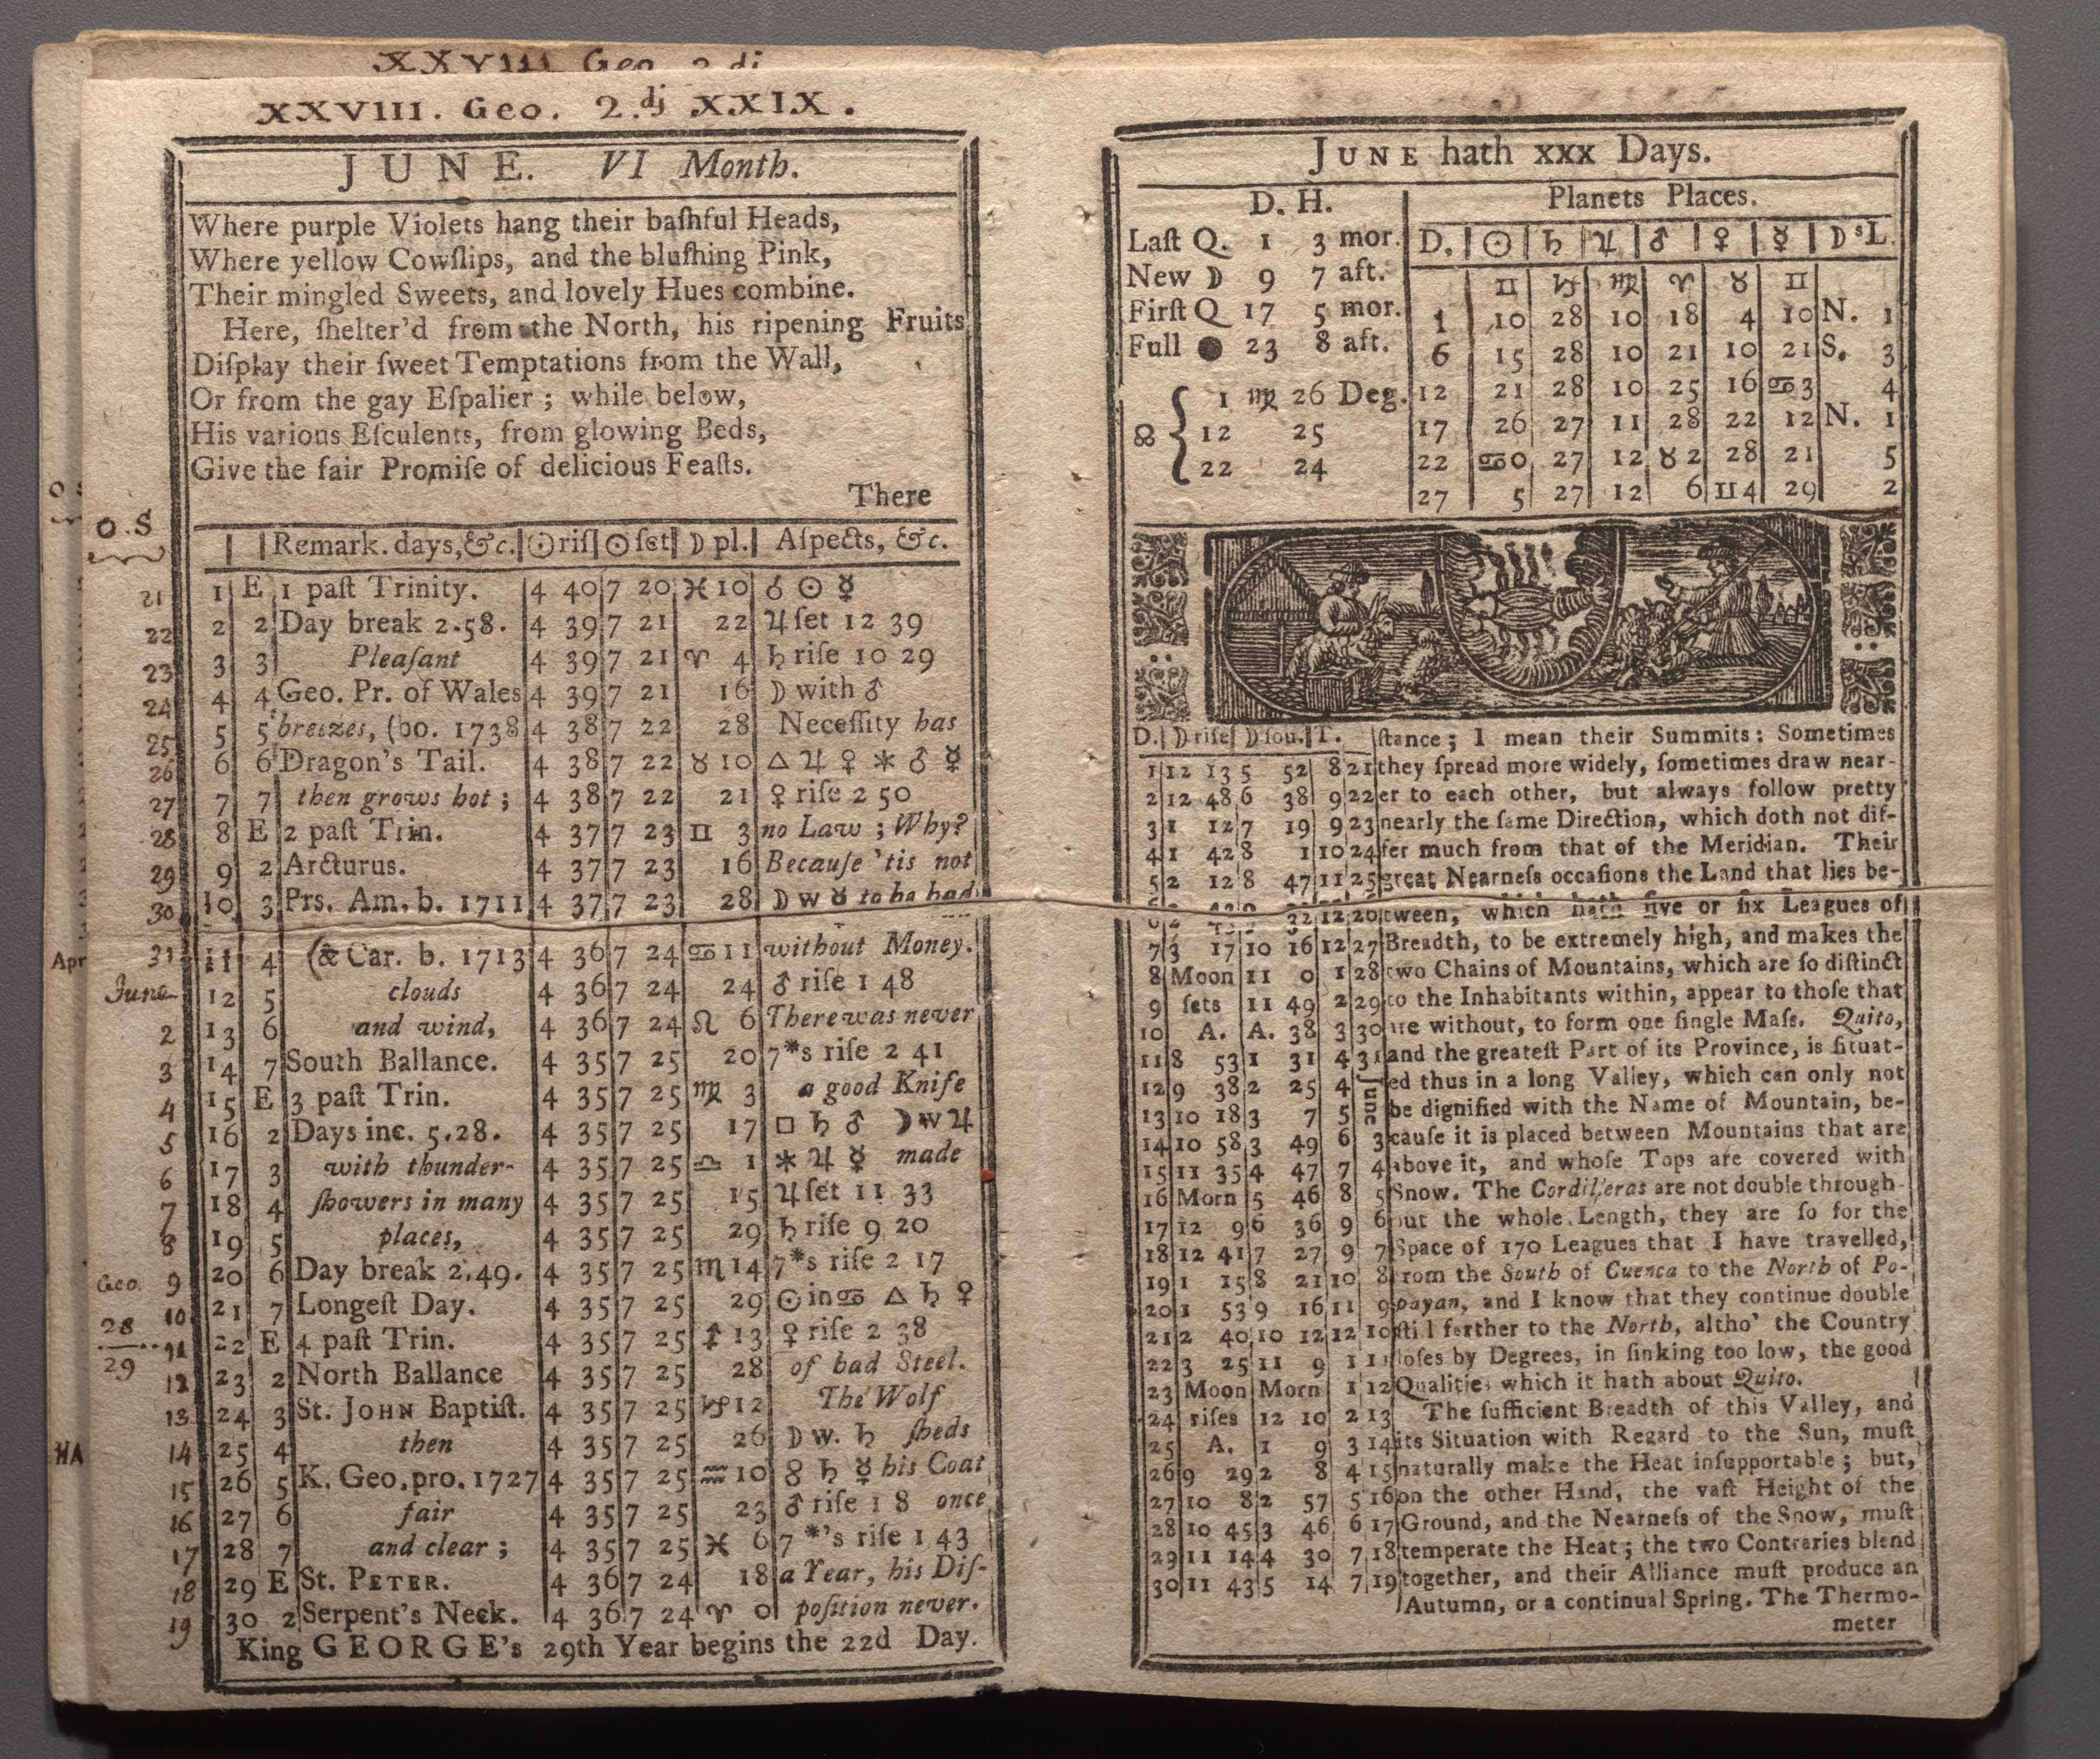 XXVIII Geo. 2.di
XXVIII. Geo. 2.dj XXIX.
JUNE. VI Month.
Where purple Violets hang their baſhful Heads,
Where yellow Cowſlips, and the bluſhing Pink,
Their mingled Sweets, and lovely Hues combine.
Here, ſhelter'd from the North, his ripening Fruits
Diſplay their ſweet Temptations from the Wall,
Or from the gay Eſpalier; while below,
His various Eſculents, from glowing Beds,
Give the fair Promiſe of delicious Feaſts.
There
O.S
Remark. days, &c. ☉riſ ☉ſet ☽ pl. Aſpects, &c.
21 1 E 1 paſt Trinity. 4 40 7 20 ♓ 10 ☌ ☉ ☿
22 2 2 Day break 2.58. 4 39 7 21 22 ♃ ſet 12 39
23 3 3 Pleaſant 4 39 7 21 ♈ 4 ♄ riſe 10 29
24 4 4 Geo. Pr. of Wales 4 39 7 21 16 ☽ with ♂
25 5 5 breezes, (bo. 1738 4 38 7 22 28 Neceſſity has
26 6 6 Dragon's Tail. 4 38 7 22 ♉ 10 △ ♃ ♀ ⚹ ♂ ☿
27 7 7 then grows hot; 4 38 7 22 21 ♀ riſe 2 50
28 8 E 2 paſt Trin. 4 37 7 23 ♊ 3 no Law; Why?
29 9 2 Arcturus. 4 37 7 23 16 Becauſe 'tis not
30 10 3 Prs. Am. b. 1711 4 37 7 23 28 ☽ w ☿ to be had
31 11 4 (& Car. b. 1713 4 36 7 24 ♋ 11 without Money.
June 12 5 clouds 4 36 7 24 24 ♂ riſe 1 48
2 13 6 and wind, 4 36 7 24 ♌ 6 There was never
3 14 7 South Ballance. 4 35 7 25 20 7*s riſe 2 41
4 15 E 3 paſt Trin. 4 35 7 25 ♍ 3 a good Knife
5 16 2 Days inc. 5.28. 4 35 7 25 17 □ ♄ ♂ ☽ w ♃
6 17 3 with thunder- 4 35 7 25 ♎ 1 ⚹ ♃ ☿ made
7 18 4 ſhowers in many 4 35 7 25 15 ♃ ſet 11 33
8 19 5 places, 4 35 7 25 29 ♄ riſe 9 20
Geo. 9 20 6 Day break 2.49. 4 35 7 25 ♏ 14 7*s riſe 2 17
10 21 7 Longeſt Day. 4 35 7 25 29 ☉ in ♋ △ ♄ ♀
28 11 22 E 4 paſt Trin. 4 35 7 25 ♐ 13 ♀ riſe 2 38
29 12 23 2 North Ballance 4 35 7 25 28 of bad Steel.
13 24 3 St. JOHN Baptiſt. 4 35 7 25 ♑ 12 The Wolf
14 25 4 then 4 35 7 25 26 ☽ w. ♄ ſheds
15 26 5 K. Geo. pro. 1727 4 35 7 25 ♒ 10 ☍ ♄ ☿ his Coat
16 27 6 fair 4 35 7 25 23 ♂ riſe 1 8 once
17 28 7 and clear; 4 35 7 25 ♓ 6 7*'s riſe 1 43
18 29 E St. PETER. 4 36 7 24 18 a Year, his Diſ-
19 30 2 Serpent's Neck. 4 36 7 24 ♈ 0 poſition never.
King GEORGE's 29th Year begins the 22d Day.
Apr
HA
JUNE hath xxx Days.
D. H.
Laſt Q. 1 3 mor.
New ☽ 9 7 aft.
Firſt Q 17 5 mor.
Full ● 23 8 aft.
☊ { 1 ♍ 26 Deg.
12 25
22 24
Planets Places.
D. ☉ ♄ ♃ ♂ ♀ ☿ ☽sL.
♊ ♑ ♍ ♈ ♉ ♊
1 10 28 10 18 4 10 N. 1
6 15 28 10 21 10 21 S. 3
12 21 28 10 25 16 ♋3 4
17 26 27 11 28 22 12 N. 1
22 ♋0 27 12 ♉ 2 28 21 5
27 5 27 12 6 ♊4 29 2
D. ☽riſe ☽ſou. T.
1 12 13 5 52 8 21
2 12 48 6 38 9 22
3 1 12 7 19 9 23
4 1 42 8 1 10 24
5 2 12 8 47 11 25
32 12 26
7 3 17 10 16 12 27
8 Moon 11 0 1 28
9 ſets 11 49 2 29
10 A. A. 38 3 30
11 8 53 1 31 4 31
12 9 38 2 25 4 June
13 10 18 3 7 5
14 10 58 3 49 6 3
15 11 35 4 47 7 4
16 Morn 5 46 8 5
17 12 9 6 36 9 6
18 12 41 7 27 9 7
19 1 15 8 21 10 8
20 1 53 9 16 11 9
21 2 40 10 12 12 10
22 3 25 11 9 1 11
23 Moon Morn 1 12
24 riſes 12 10 2 13
25 A. 1 9 3 14
26 9 29 2 8 4 15
27 10 8 2 57 5 16
28 10 45 3 46 6 17
29 11 14 4 30 7 18
30 11 43 5 14 7 19
ſtance; I mean their Summits: Sometimes
they ſpread more widely, ſometimes draw near-
er to each other, but always follow pretty
nearly the ſame Direction, which doth not dif-
fer much from that of the Meridian. Their
great Nearneſs occaſions the Land that lies be-
tween, which hath five or ſix Leagues of
Breadth, to be extremely high, and makes the
two Chains of Mountains, which are ſo diſtinct
to the Inhabitants within, appear to thoſe that
are without, to form one ſingle Maſs. Quito,
and the greateſt Part of its Province, is ſituat-
ed thus in a long Valley, which can only not
be dignified with the Name of Mountain, be-
cauſe it is placed between Mountains that are
above it, and whoſe Tops are covered with
Snow. The Cordilleras are not double through-
out the whole Length, they are ſo for the
Space of 170 Leagues that I have travelled,
from the South of Cuenca to the North of Po-
payan, and I know that they continue double
ſtill farther to the North, altho' the Country
loſes by Degrees, in ſinking too low, the good
Qualities which it hath about Quito.
The ſufficient Breadth of this Valley, and
its Situation with Regard to the Sun, muſt
naturally make the Heat inſupportable; but,
on the other Hand, the vaſt Height of the
Ground, and the Nearneſs of the Snow, muſt
temperate the Heat; the two Contraries blend
together, and their Alliance muſt produce an
Autumn, or a continual Spring. The Thermo-
meter